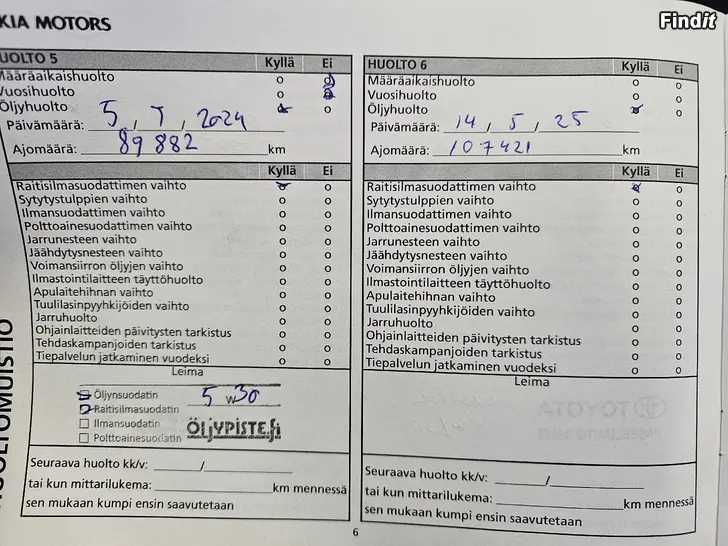 Findit
KIA MOTORS
HUOLTO 5 Kyllä Ei
Määräaikaishuolto o o
Vuosihuolto o o
Öljyhuolto o o
Päivämäärä: 5, 7, 2024
Ajomäärä: 89 882 km
Kyllä Ei
Raitisilmasuodattimen vaihto o o
Sytytystulppien vaihto o o
Ilmansuodattimen vaihto o o
Polttoainesuodattimen vaihto o o
Jarrunesteen vaihto o o
Jäähdytysnesteen vaihto o o
Voimansiirron öljyjen vaihto o o
Ilmastointilaitteen täyttöhuolto o o
Apulaitehihnan vaihto o o
Tuulilasinpyyhkijöiden vaihto o o
Jarruhuolto o o
Ohjainlaitteiden päivitysten tarkistus o o
Tehdaskampanjoiden tarkistus o o
Tiepalvelun jatkaminen vuodeksi o o
Leima
Öljynsuodatin 5 w 30
Raitisilmasuodatin
Ilmansuodatin
Polttoainesuodatin
ÖLJYPISTE.fi
Seuraava huolto kk/v: /
tai kun mittarilukema: km mennessä
sen mukaan kumpi ensin saavutetaan
HUOLTO 6 Kyllä Ei
Määräaikaishuolto o o
Vuosihuolto o o
Öljyhuolto o o
Päivämäärä: 14, 5, 25
Ajomäärä: 107421 km
Kyllä Ei
Raitisilmasuodattimen vaihto o o
Sytytystulppien vaihto o o
Ilmansuodattimen vaihto o o
Polttoainesuodattimen vaihto o o
Jarrunesteen vaihto o o
Jäähdytysnesteen vaihto o o
Voimansiirron öljyjen vaihto o o
Ilmastointilaitteen täyttöhuolto o o
Apulaitehihnan vaihto o o
Tuulilasinpyyhkijöiden vaihto o o
Jarruhuolto o o
Ohjainlaitteiden päivitysten tarkistus o o
Tehdaskampanjoiden tarkistus o o
Tiepalvelun jatkaminen vuodeksi o o
Leima
TOYOTA
Seuraava huolto kk/v: /
tai kun mittarilukema: km mennessä
sen mukaan kumpi ensin saavutetaan
HUOLTOMUISTIO
6